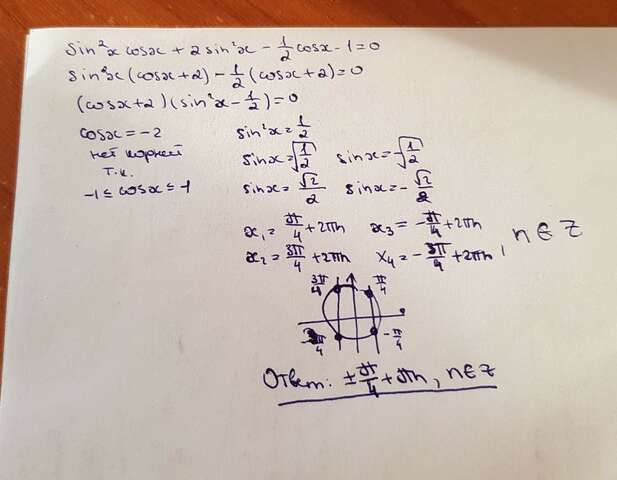 sin²x cosx + 2 sin²x - 1/2 cosx - 1 = 0
sin²x (cosx + 2) - 1/2 (cosx + 2) = 0
(cosx + 2) (sin²x - 1/2) = 0
cosx = -2 sin²x = 1/2
нет корней sinx = √1/2 sinx = -√1/2
т.к.
-1 ≤ cosx ≤ 1 sinx = √2/2 sinx = -√2/2
x₁ = π/4 + 2πn x₃ = -π/4 + 2πn
x₂ = 3π/4 + 2πn x₄ = -3π/4 + 2πn, n∈Z
3π/4 π/4
-3π/4 -π/4
Ответ: ± π/4 + πn, n∈Z